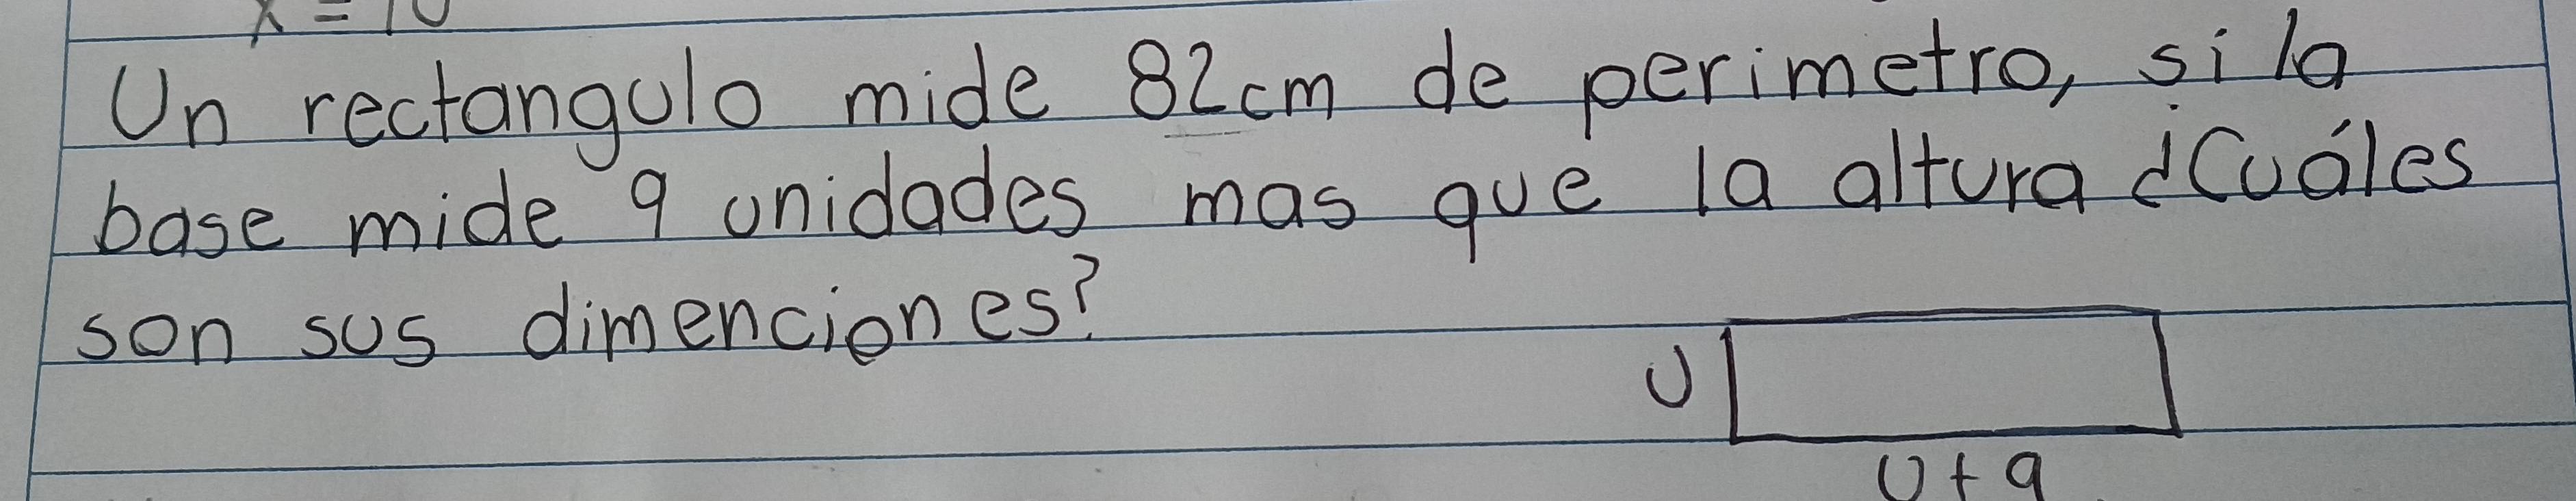 x = 10
Un rectangulo mide 82cm de perimetro, si la
base mide 9 unidades mas que la altura ¿Cuáles
son sus dimenciones?
U
U + 9